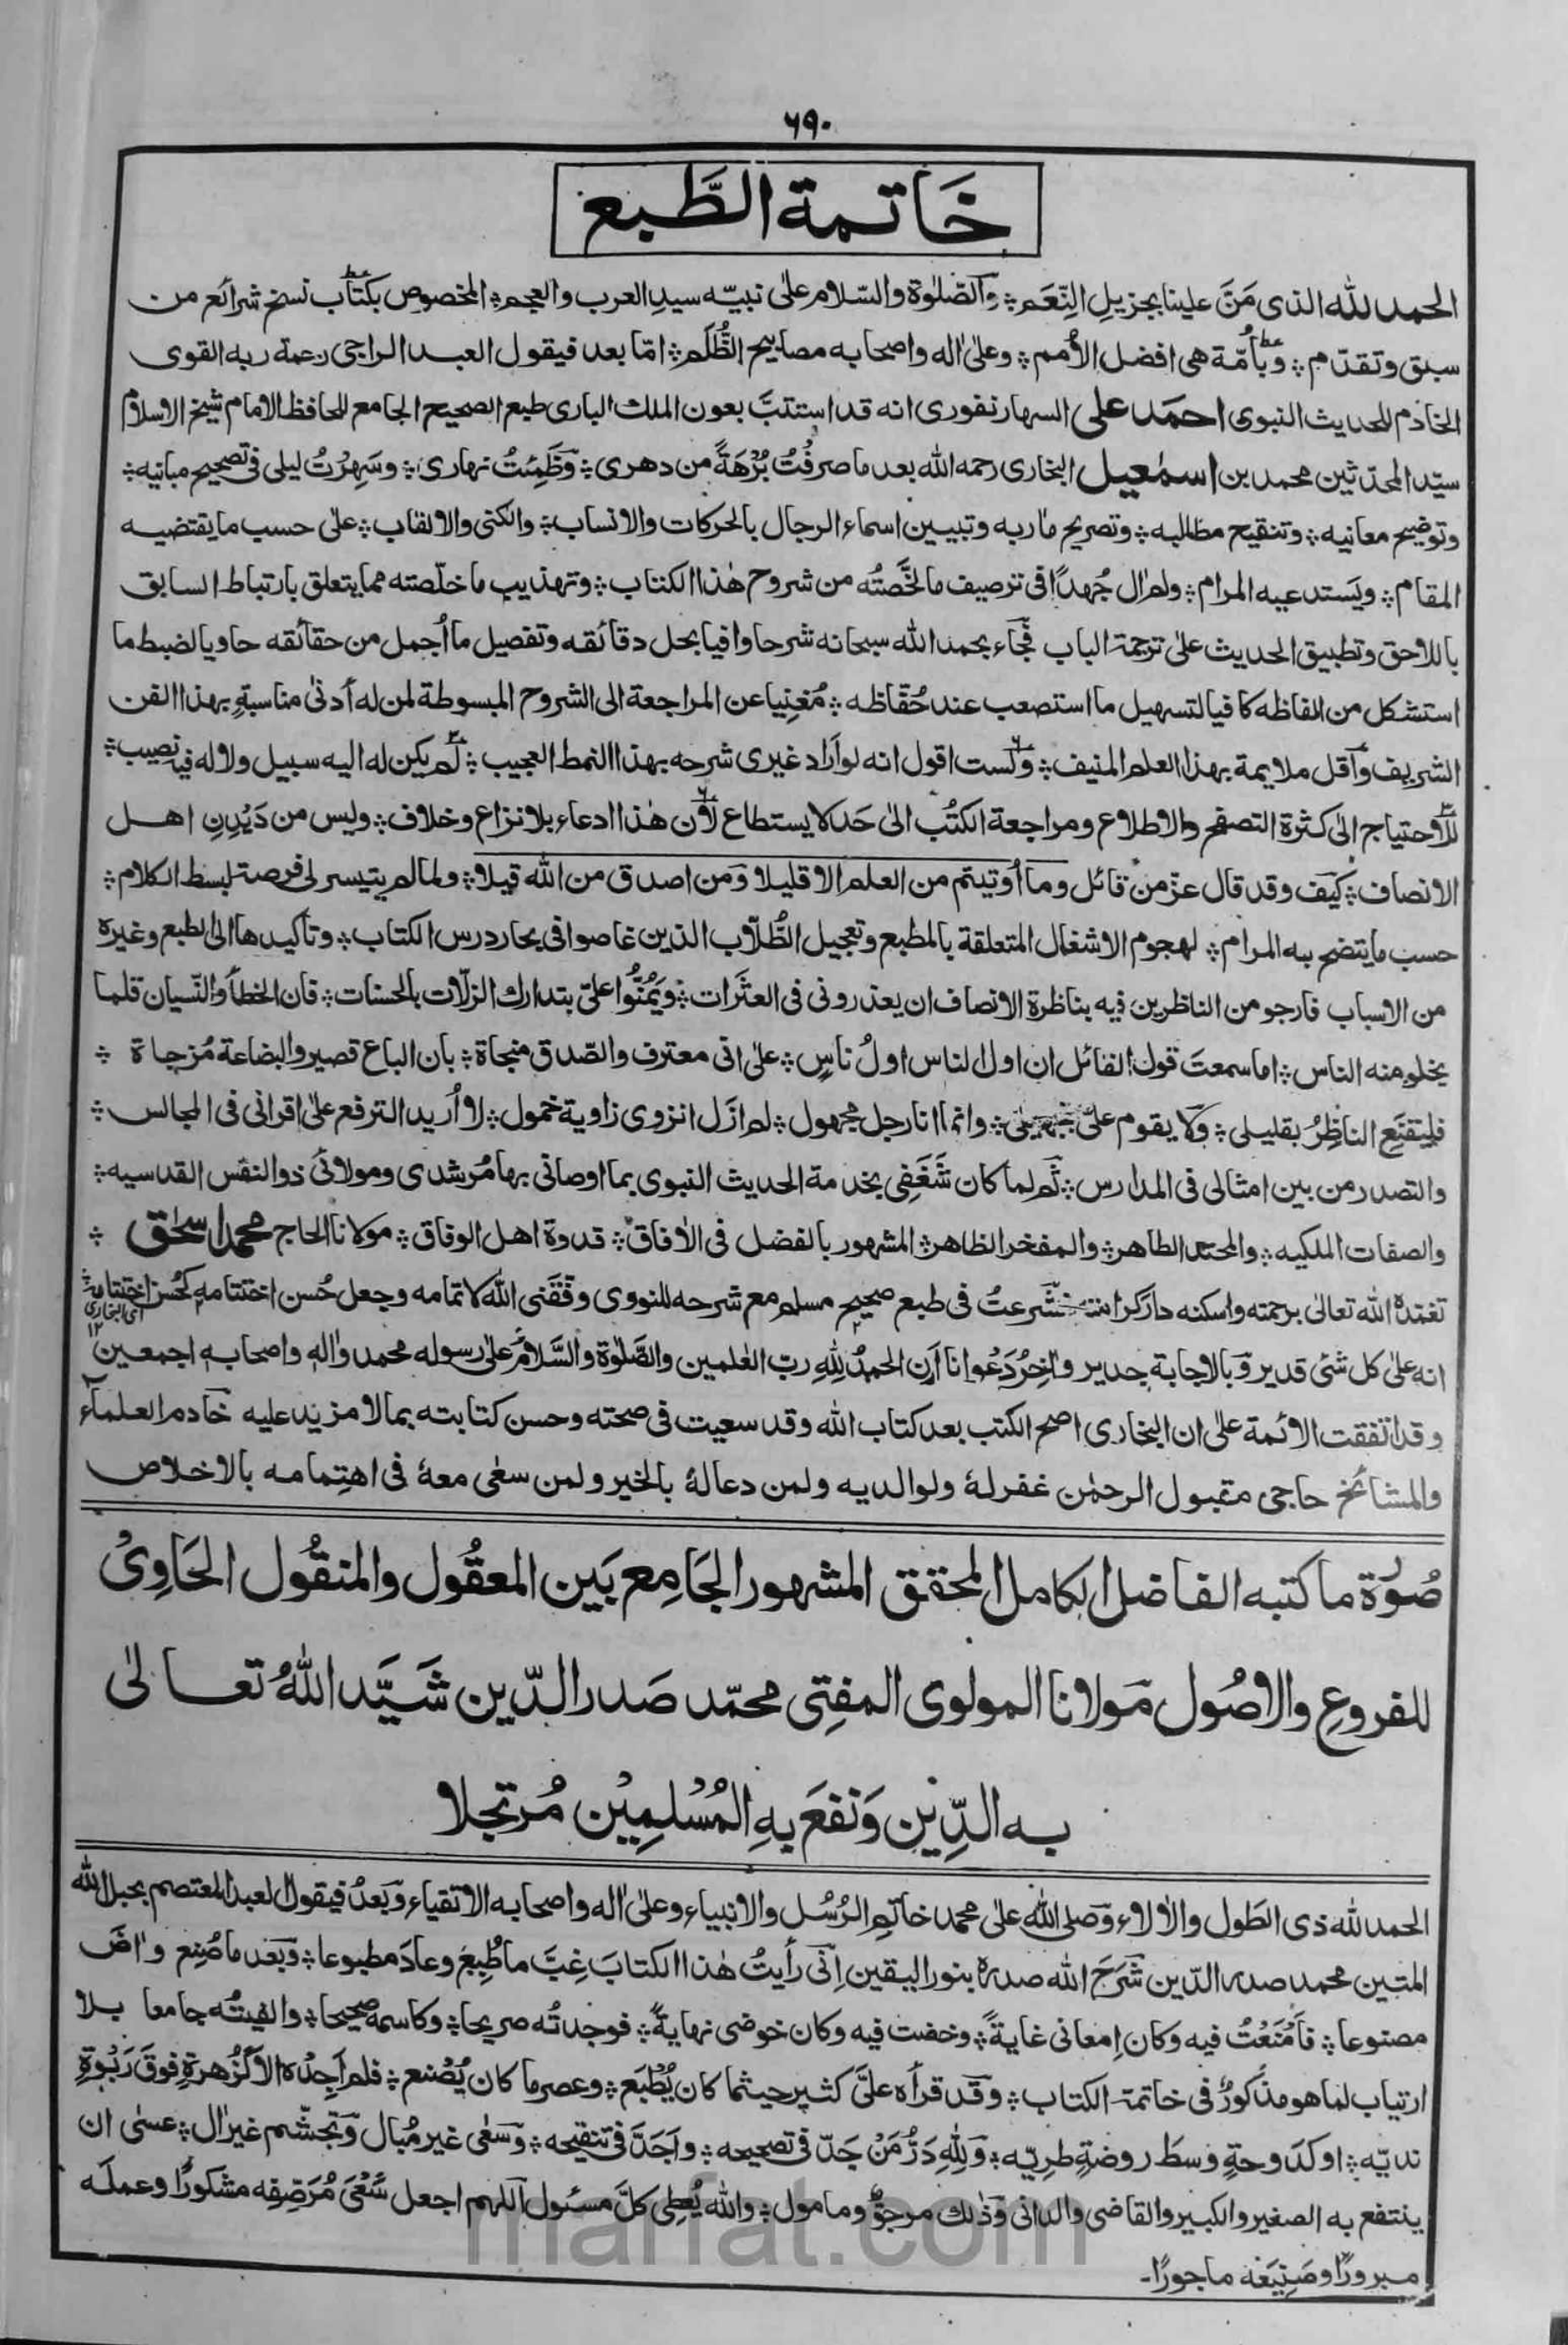 ٦٩٠
خَاتمة الطَّبع
الحمد لله الذى مَنَّ علينا بجزيلِ النِّعَم؞ وَالصَّلوٰة والسّلام علىٰ نبيّه سيدِ العرب والعجم؞ المخصوص بكتاب نسخ شرائع من
سبق وتقدّم؞ وبأُمّة هى افضل الأمم؞ وعلىٰ اٰله واصحابه مصابيح الظُّلَم؞ امّا بعد فيقول العبد الراجى رحمة ربه القوى
الخادم للحديث النبوى احمَد على السهارنفورى انه قد استتبَّ بعون الملك البارى طبع الصحيح الجامع للحافظ الامام شيخ الاسلام
سيّد المحدّثين محمد بن اسمٰعيل البخارى رحمه الله بعد ما صرفْتُ بُرْهَةً من دهرى؞ وَظَمِئتُ نهارى؞ وسَهِرْتُ ليلى فى تصحيح مبانيه؞
وتوضيح معانيه؞ وتنقيح مطالبه؞ وتصريح ماٰربه وتبيين اسماء الرجال بالحركات والانساب؞ والكنى والالقاب؞ علىٰ حسب ما يقتضيه
المقام؞ ويَستدعيه المرام؞ ولم اٰل جُهدًا فى ترصيف ما لخَّصتُه من شروح هٰذا الكتاب؞ وتهذيب ما خلّصته مما يتعلق بارتباط السابق
باللاحق وتطبيق الحديث علىٰ ترجمة الباب فجَاء بحمد الله سبحانه شرحا وافيا بحل دقائقه وتفصيل ما أجمل من حقائقه حاويا لضبط ما
استشكل من الفاظه كافيا لتسهيل ما استصعب عند حُفّاظه؞ مُغنِيا عن المراجعة الى الشروح المبسوطة لمن له أدنىٰ مناسبةٍ بهذا الفن
الشريف وَأقل ملايمة بهذا العلم المنيف؞ وَلست اقول انه لو أراد غيرى شرحه بهذا النمط العجيب؞ لَم يكن له اليه سبيل ولا له فيه نصيب؞
للاحتياج الىٰ كثرة التصفح والاطلاع ومراجعة الكتُب الىٰ حَد لا يستطاع لأن هٰذا ادعاء بلا نزاع وخلاف؞ وليس من دَيْدنِ اهل
الانصاف؞ كيَف وقد قال عزّ من قائل وما أوتيتم من العلم الا قليلا وَمن اصدق من الله قيلا؞ ولما لم يتيسر لى فرصة لبسط الكلام؞
حسب ما يتضح به المرام؞ لهجوم الاشغال المتعلقة بالمطبع وتعجيل الطُّلّاب الذين غاصوا فى بحار درس الكتاب؞ وتأكيدها الى الطبع وغيره
من الاسباب فارجو من الناظرين فيه بناظرة الانصاف ان يعذرونى فى العثَرات؞ ويَمُنُّوا علىّ بتدارك الزلّات بالحسنات؞ فان الخطأ وَالنّسيان قلما
يخلو منه الناس؞ اما سمعتَ قول القائل ان اول الناس اولُ ناسٍ؞ علىٰ انى معترف والصّدق منجاة؞ بان الباع قصير والبضاعة مُزجاة؞
فليقنَعِ الناظِرُ بقليلى؞ وَلا يقوم علىّ؞ وانما انا رجل مجهول؞ لم ازَل انزوى زاوية خمول؞ لا أُريد الترفع علىٰ اقرانى فى المجالس؞
والتصدر من بين امثالى فى المدارس؞ ثَم لما كان شَغَفِى بخدمة الحديث النبوى بما اوصانى بها مُرشدى ومولائى ذو النفس القدسيه؞
والصفات الملكيه؞ والمحتد الطاهر؞ والمفخر الظاهر؞ المشهور بالفضل فى الاٰفاق؞ قدوة اهل الوفاق؞ مولانا الحاج محمد اسحٰق؞
تغمّده الله تعالىٰ برحمته واسكنه دار كرامته شَرعتُ فى طبع صحيح مسلم مع شرحه للنووى وفّقَنى الله لاتمامه وجعل حُسن اختتامه كحُسن اختتامه
اى البخارى ١٢
انه علىٰ كل شئى قدير وَبالاجابة جدير واٰخِرُ دَعْوانا أن الحمدُ لِلّٰهِ ربّ العٰلمين والصَّلوٰة والسَّلامُ علىٰ رسوله محمد واٰله واصحابه اجمعين
وقد اتفقت الائمة علىٰ ان البخارى اصح الكتب بعد كتاب الله وقد سعيت فى صحته وحسن كتابته بما لا مزيد عليه خادم العلماء
والمشائخ حاجى مقبول الرحمٰن غفر لهٗ ولوالديه ولمن دعا لهٗ بالخير ولمن سعٰى معهٗ فى اهتِمامه بالاخلاص
صُوْرة ما كتبه الفاضل الكامل المحقق المشهور الجَامِع بَين المعقُول والمنقُول الحَاوِىْ
للفروعِ والاصُول مَولانا المولوى المفتِى محمّد صَدر الدّين شَيَّد اللهُ تعالىٰ
به الدِّيْن وَنفعَ بِهِ المُسْلِمِيْن مُرتجلا
الحمد لله ذى الطَول والاٰلاء وَصلى الله علىٰ محمد خاتم الرُسُل والانبياء وعلىٰ اٰله واصحابه الاتقياء وَبعدُ فيقول العبد المعتصم بحبل الله
المتين محمد صدر الدّين شَرَحَ الله صدره بنور اليقين اِنّى رأيتُ هٰذا الكتابَ غِبَّ ما طُبِعَ وعادَ مطبوعا؞ وَبعد ما صُنِع واٰضَ
مصنوعا؞ فأمْعَنْتُ فيه وكان اِمعانى غايةً؞ وخضت فيه وكان خوضى نهايةً؞ فوجدتُه صريحا؞ وكاسمه صحيحا؞ والفيتُه جامعا بلا
ارتياب لما هو مذكورٌ فى خاتمة الكتاب؞ وَقد قرأه علىَّ كثير حيثما كان يُطْبَع؞ وعصر ما كان يُصْنع؞ فلم اَجِدْه الا كزُهرةٍ فوقَ رَبْوةٍ
نديّه؞ او كدَوحةٍ وسطَ روضةٍ طريّه؞ وَلِلّٰهِ دَرُّ مَنْ جَدّ فى تصحيحه؞ واَجَدَّ فى تنقيحه؞ وَسَعٰى غير مُبال وَتجشّم غير اٰل؞ عسٰى ان
ينتفع به الصغير والكبير والقاضى والدانى وَذٰلك مرجوٌّ ومامول؞ والله يُعطِى كلَّ مسئول اَللّٰهم اجعل سَعْىَ مُرَصِّفِه مشكورًا وعملَه
مبرورًا وصَنِيْعَهٗ ماجورًا۔
marfat.com